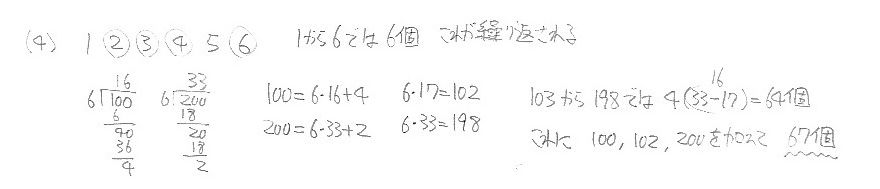 (4) 1 ② ③ ④ 5 ⑥ 1から6では6個 これが繰り返される
16
6)100
6
40
36
4
33
6)200
18
20
18
2
100=6·16+4 6·17=102
200=6·33+2 6·33=198
16
103から198では 4(33-17)=64個
これに 100, 102, 200を加えて 67個